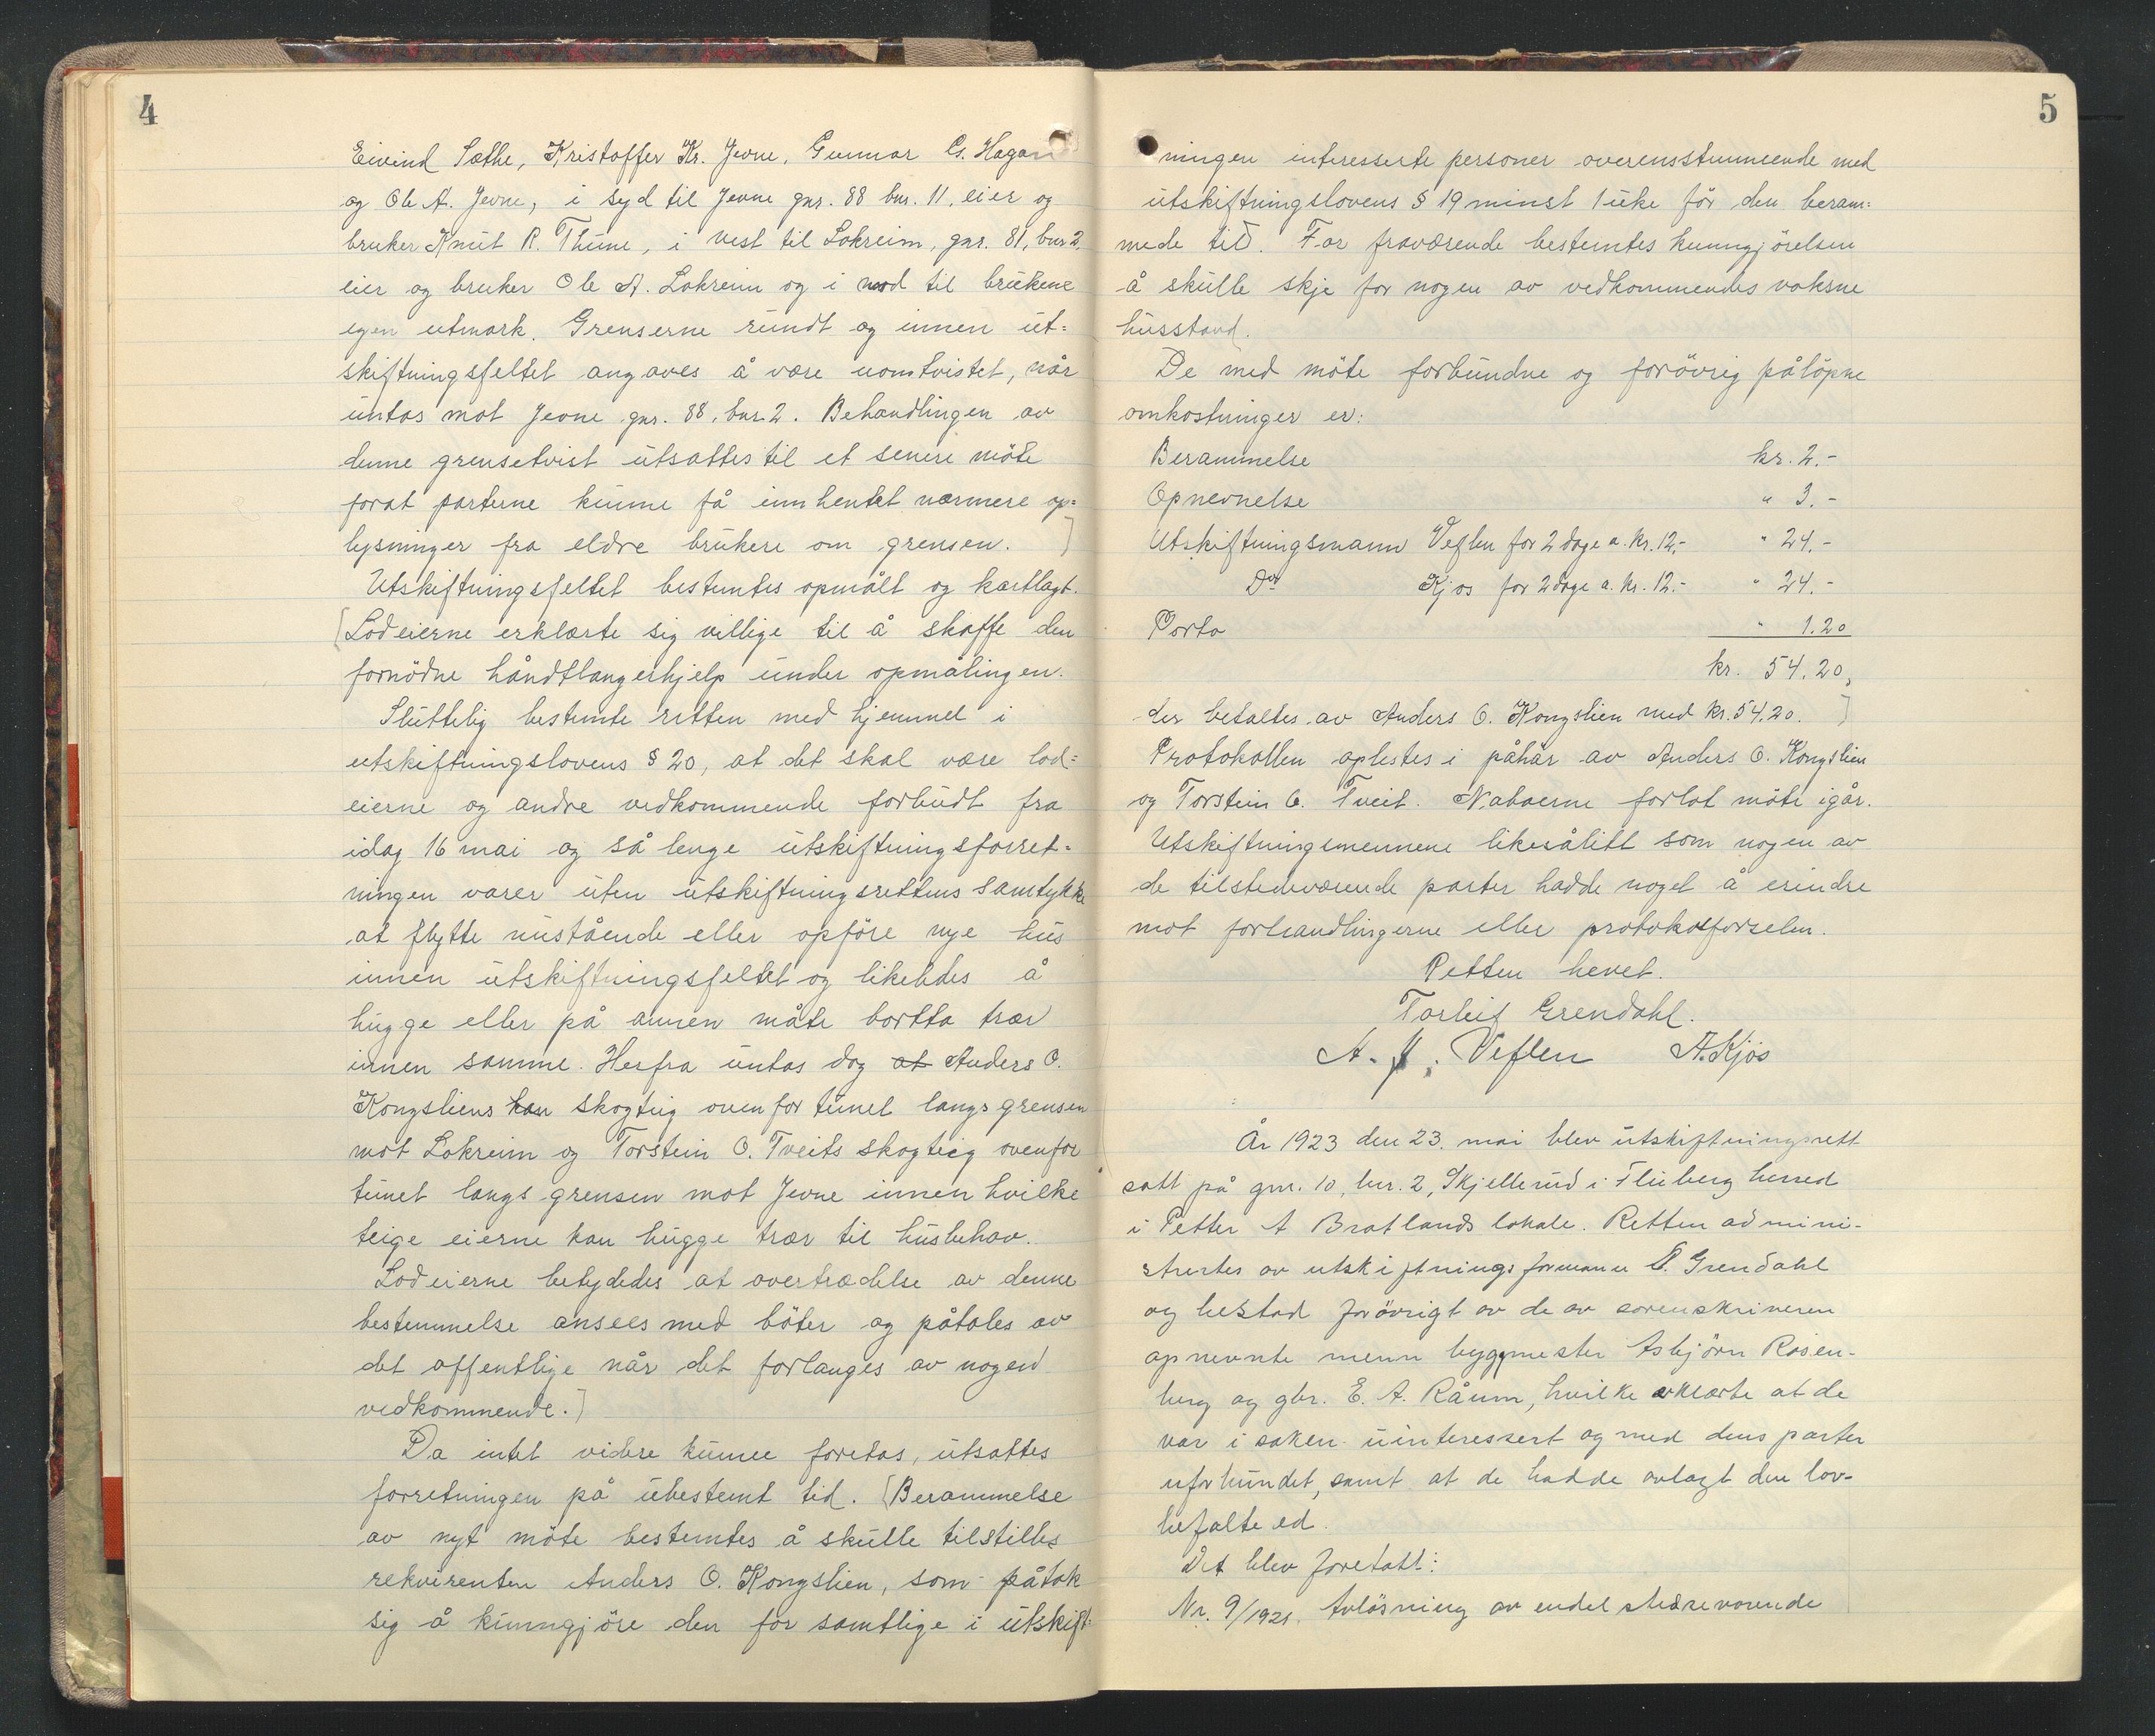 4
Eivind Sæthe, Kristoffer Kr. Jevne, Gunnar G. Hagan
og Ole A. Jevne, i syd til Jevne gnr. 88 bnr. 11, eier og
bruker Knut R. Thune, i vest til Lokreim, gnr. 81, bnr 2,
eier og bruker Ole A. Lokreim og i nord til brukene
egen utmark. Grenserne rundt og innen ut=
skiftningsfeltet angaves å være uomtvistet, når
untas mot Jevne gnr. 88, bnr. 2. Behandlingen av
denne grensetvist utsattes til et senere möte
forat parterne kunne få innhentet nærmere op=
lysninger fra eldre brukere om grensen. ]
Utskiftningsfeltet bestemtes opmålt og kartlagt.
[Lodeierne erklærte sig villige til å skaffe den
fornödne håndtlangerhjelp under opmålingen.
Sluttelig bestemte retten med hjemmel i
utskiftningslovens § 20, at det skal være lod=
eierne og andre vedkommende forbudt fra
idag 16 mai og så lenge utskiftningsforret=
ningen varer uten utskiftningsrettens samtykke
at flytte nustående eller opföre nye hus
innen utskiftningsfeltet og likeledes å
hugge eller på annen måte bortta trær
innen samme. Herfra untas dog at Anders O.
Kongsliens kan skogteig ovenfor tunet langs grensen
mot Lokreim og Torstein O. Tveits skogteig ovenfor
tunet langs grensen mot Jevne innen hvilke
teige eierne kan hugge trær til husbehov.
Lodeierne betydedes at overtrædelse av denne
bestemmelse ansees med böter og påtales av
det offentlige når det forlanges av nogen
vedkommende.]
Da intet videre kunne foretas, utsattes
forretningen på ubestemt tid. [Berammelse
av nyt möte bestemtes å skulle tilstilles
rekvirenten Anders O. Kongslien, som påtok
sig å kunngjöre den for samtlige i utskift=
5
ningen interesserte personer overensstemmende med
utskiftningslovens § 19 minst 1 uke för den beram=
mede tid. For fraværende bestemtes kunngjörelsen
å skulle skje for nogen av vedkommendes voksne
husstand.
De med möte forbundne og forövrig pålöpne
omkostninger er:
Berammelse kr. 2.-
Opnevnelse " 3.-
Utskiftningsmann Veflen for 2 dage a. kr. 12.- " 24.-
Do Kjos for 2 dage a. kr. 12.- " 24.-
Porto " 1.20
kr. 54.20,
der betaltes av Anders O. Kongslien med kr. 54.20. ]
Protokollen oplestes i påhör av Anders O. Kongslien
og Torstein O. Tveit. Naboerne forlot möte igår.
Utskiftningsmennene likesålitt som nogen av
de tilstedeværende parter hadde noget å erindre
mot forhandlingerne eller protokolforselen.
Retten hevet.
Torleif Grendahl.
A. J. Veflen A. Kjos
År 1923 den 23. mai blev utskiftningsrett
satt på gnr. 10, bnr. 2, Skjellerud i Fluberg herred
i Petter A Bratlands lokale. Retten admini-
strertes av utskiftningsformann T. Grendahl
og bestod forövrigt av de av sorenskriveren
opnevnte menn byggmester Asbjörn Rosen-
berg og gbr. E. A. Råum, hvilke erklærte at de
var i saken uinteressert og med dens parter
uforbundet, samt at de hadde avlagt den lov-
befalte ed.
Det blev foretatt:
Nr. 9/1921. Avlösning av endel stedsevarende